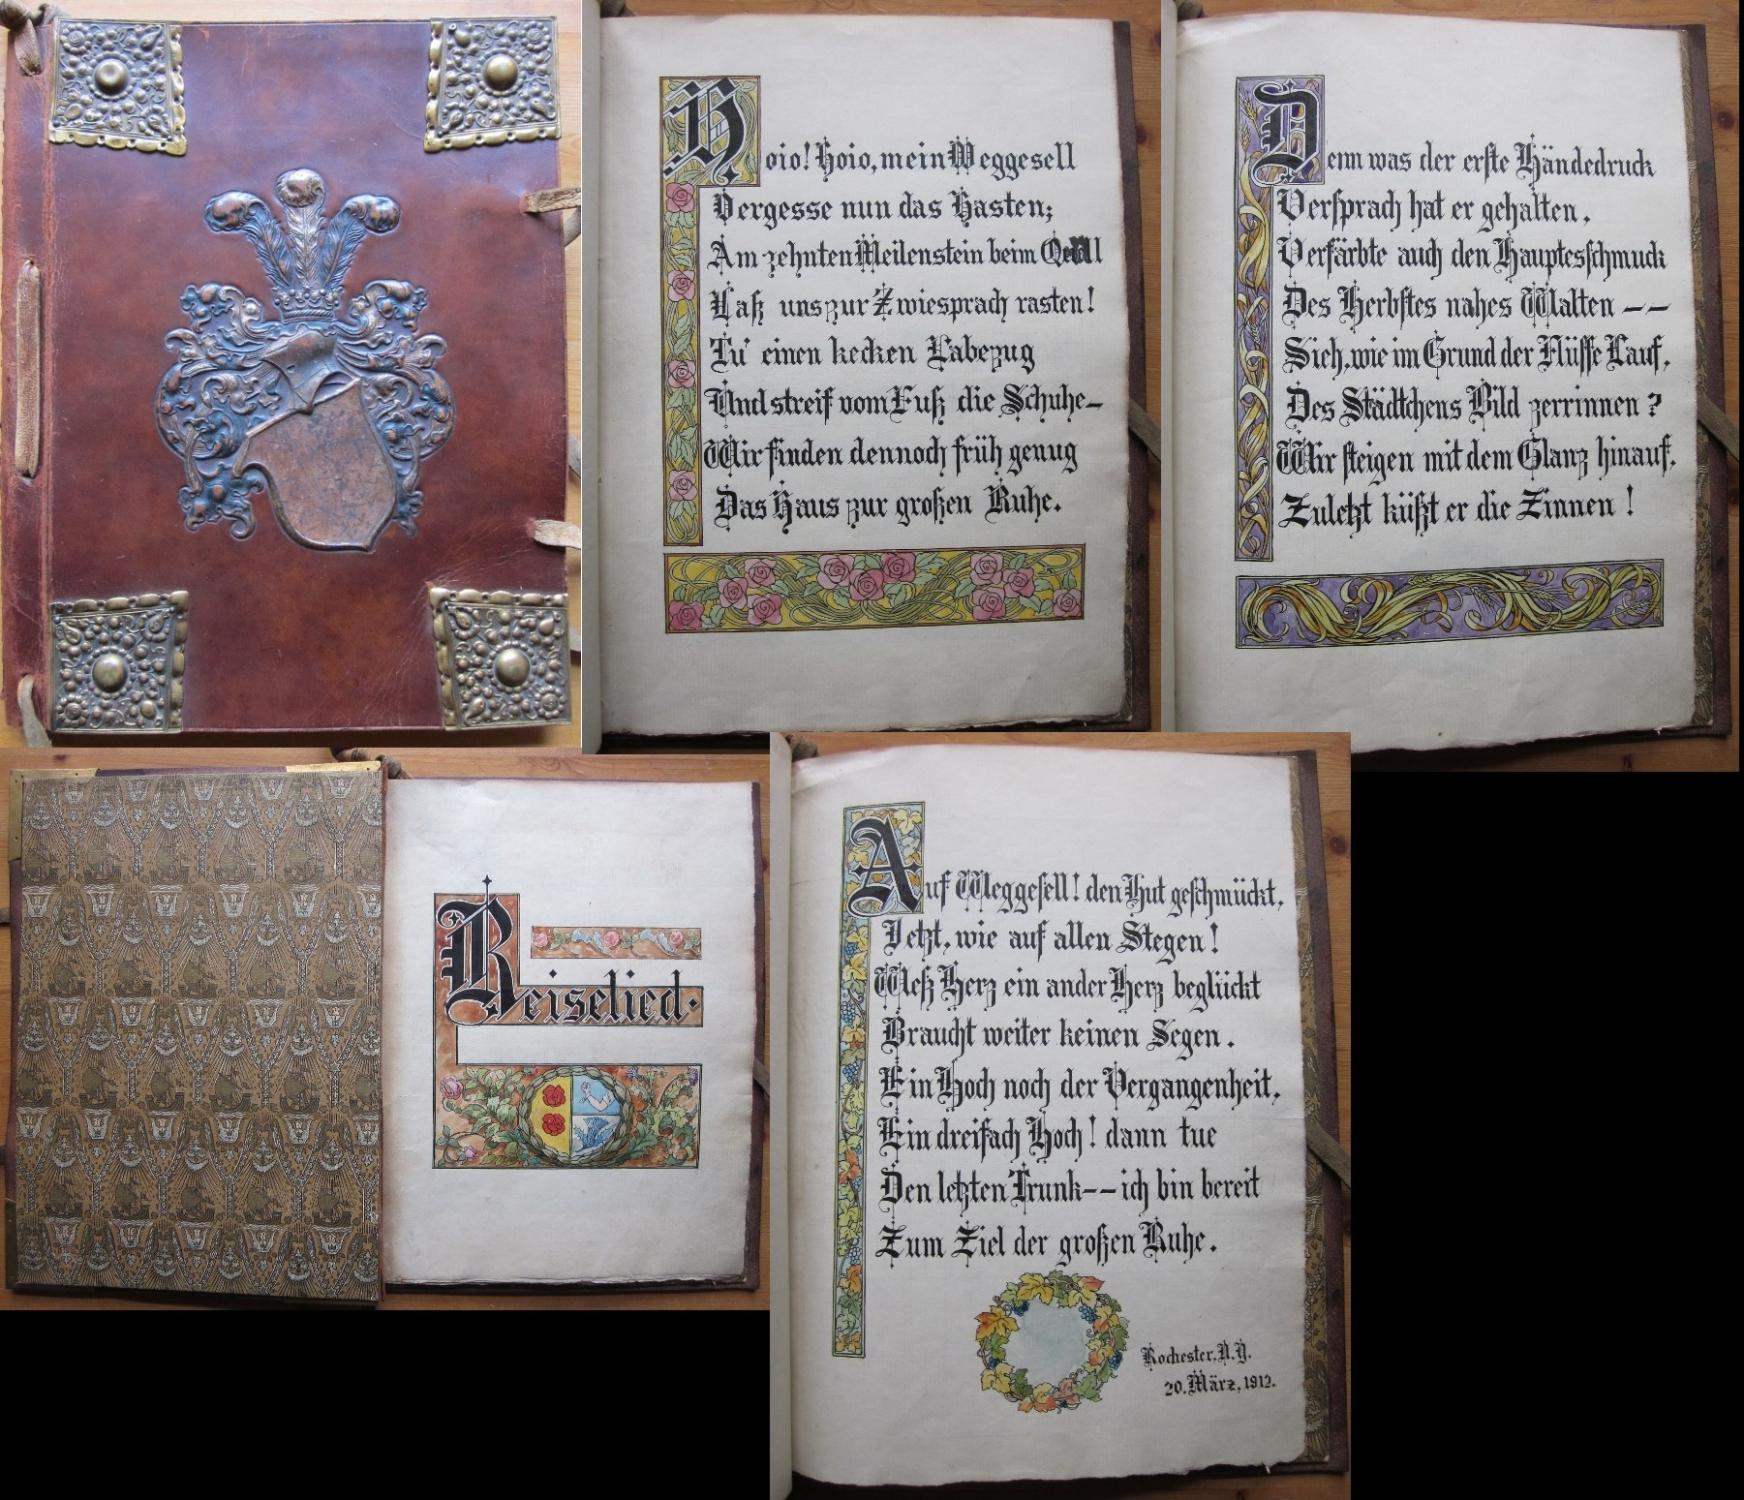 Hoio! Hoio, mein Weggesell
Vergesse nun das Hasten;
Am zehnten Meilenstein beim Quell
Laß uns zur Zwiesprach rasten!
Tu' einen kecken Labezug
Und streif vom Fuß die Schuhe—
Wir finden dennoch früh genug
Das Haus zur großen Ruhe.
Denn was der erste Händedruck
Versprach hat er gehalten,
Verfärbte auch den Hauptesschmuck
Des Herbstes nahes Walten — —
Sieh, wie im Grund der Flüsse Lauf,
Des Städtchens Bild zerrinnen?
Wir steigen mit dem Glanz hinauf,
Zuletzt küßt er die Zinnen!
Reiselied.
Auf Weggesell! den Hut geschmückt,
Jetzt, wie auf allen Stegen!
Weß Herz ein ander Herz beglückt
Braucht weiter keinen Segen.
Ein Hoch noch der Vergangenheit,
Ein dreifach Hoch! dann tue
Den letzten Trunk — — ich bin bereit
Zum Ziel der großen Ruhe.
Rochester, N.Y.
20. März, 1912.